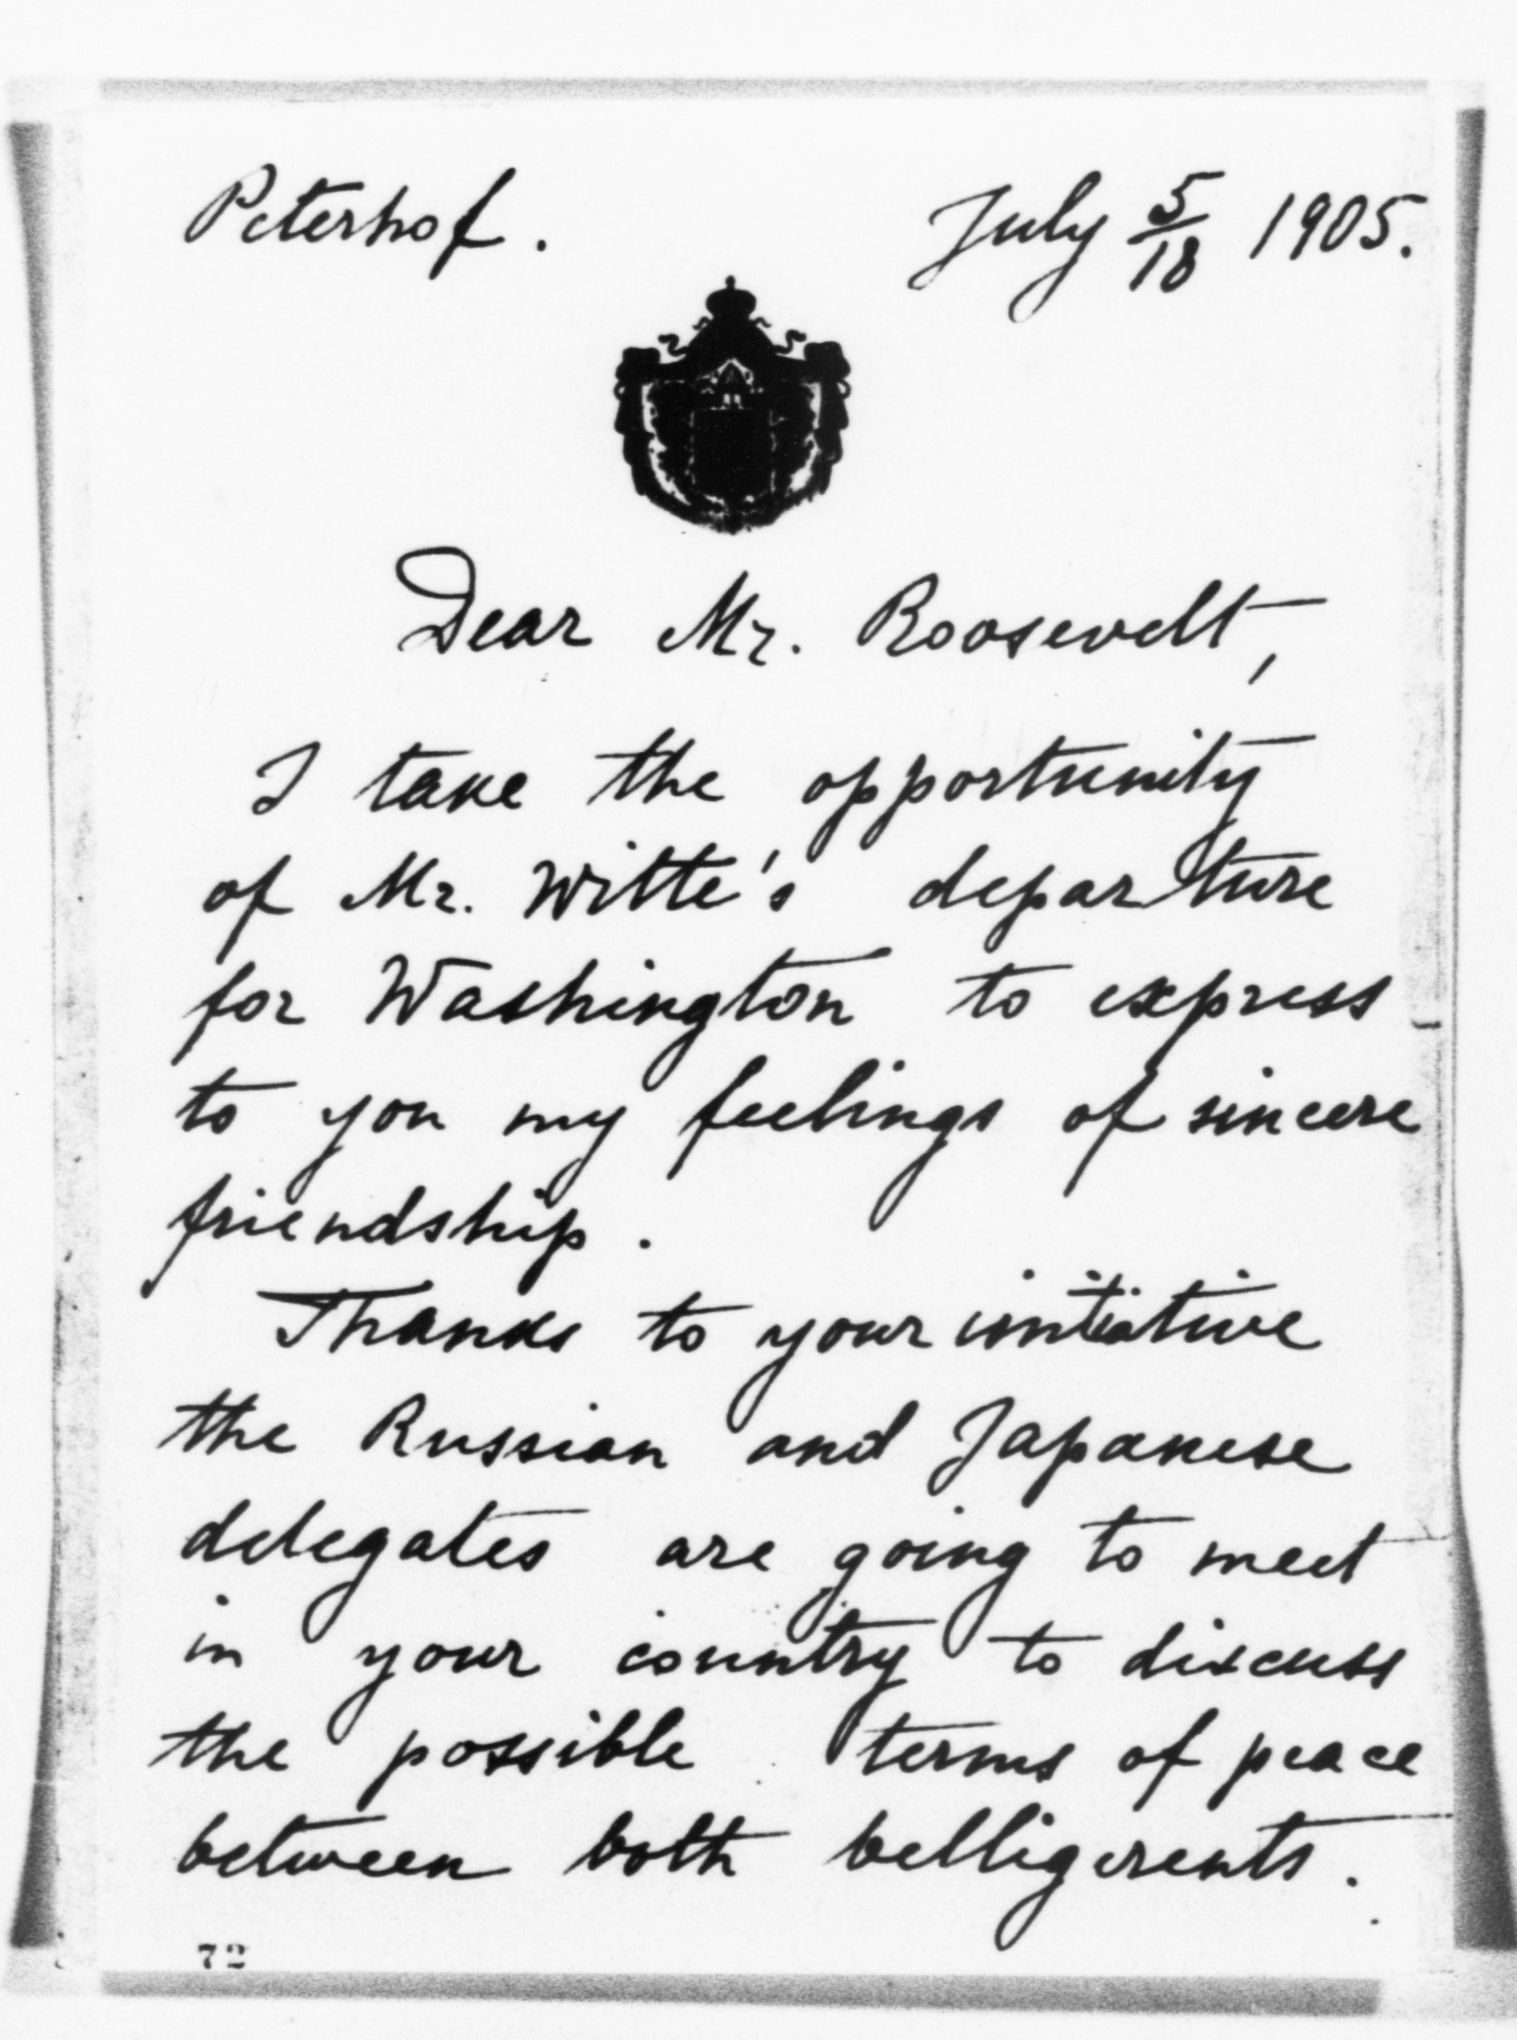 Peterhof. July 5/18 1905.
Dear Mr. Roosevelt,
I take the opportunity
of Mr. Witte's departure
for Washington to express
to you my feelings of sincere
friendship.
Thanks to your initiative
the Russian and Japanese
delegates are going to meet
in your country to discuss
the possible terms of peace
between both belligerents.
72